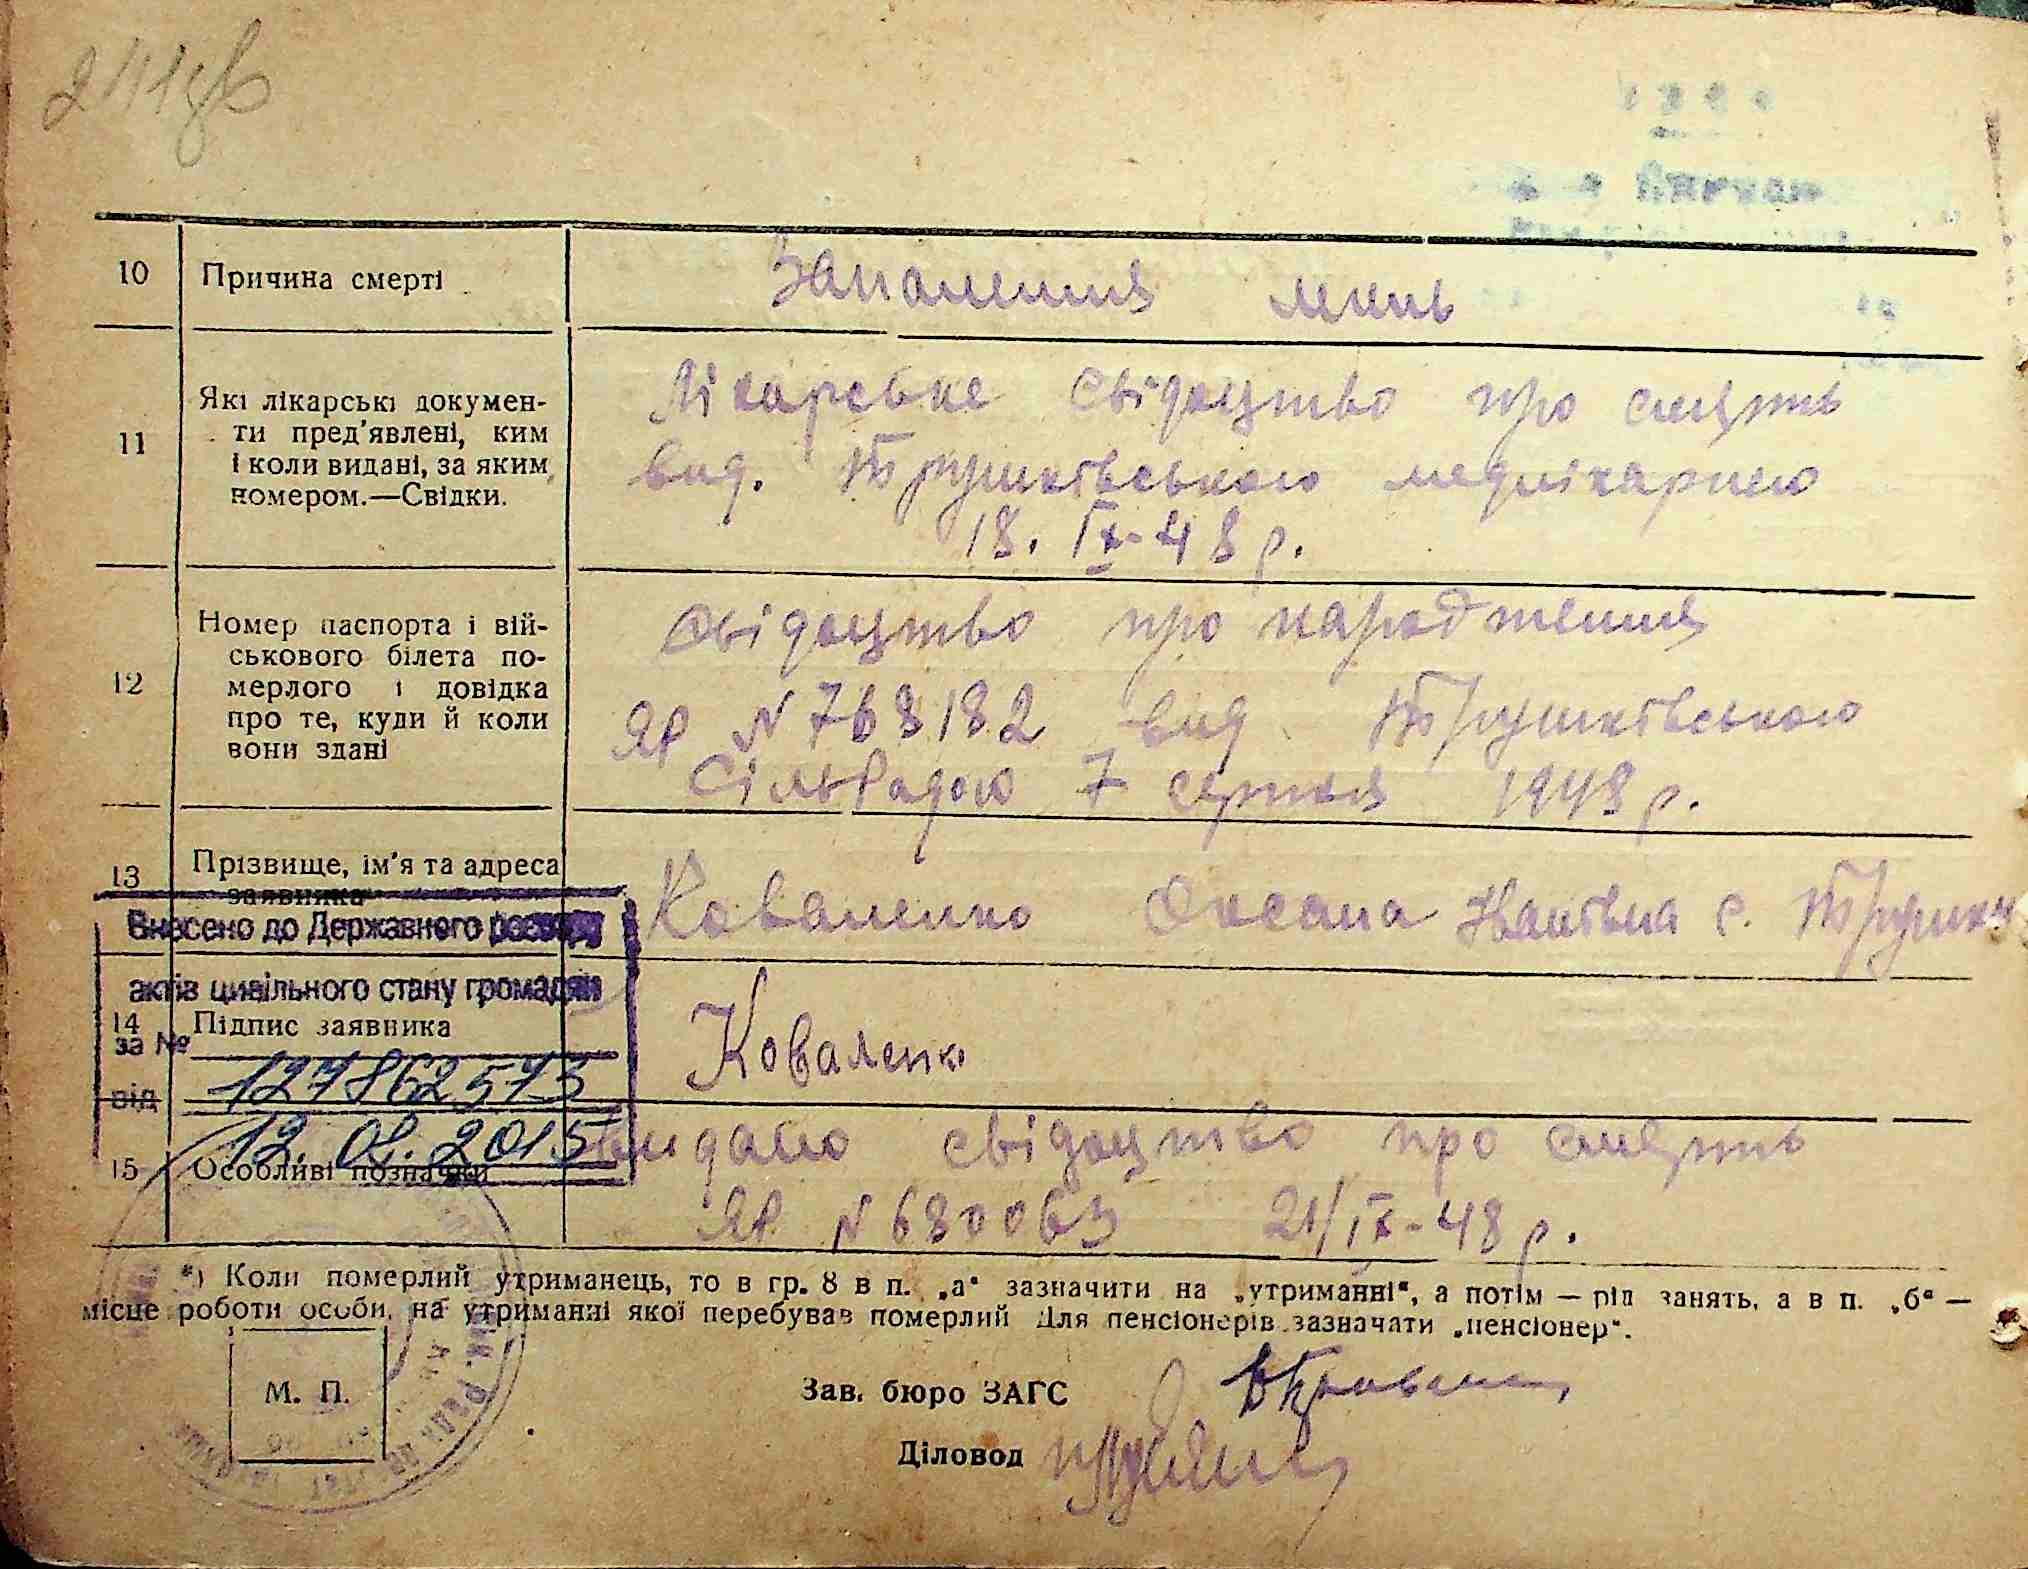 10 Причина смерті Запалення легень
11 Які лікарські докумен-
ти пред'явлені, ким
і коли видані, за яким
номером.—Свідки.
Лікарське свідоцтво про смерть
вид. Трушківською медлікарнею
18. IX-48 р.
12 Номер паспорта і вій-
ськового білета по-
мерлого і довідка
про те, куди й коли
вони здані
Свідоцтво про народження
ЯР N 768182 вид Трушківською
Сільрадою 7 серпня 1948 р.
13 Прізвище, ім'я та адреса
заявника
Коваленко Оксана Іванівна с. Трушки
Внесено до Державного реєстру
актів цивільного стану громадян
14 Підпис заявника Коваленко
за № 127862573
від 12. 01. 2015
15 Особливі позначки
видано свідоцтво про смерть
ЯР N 680063 21/IX-48 р.
*) Коли померлий утриманець, то в гр. 8 в п. „а“ зазначити на „утриманні“, а потім — рід занять, а в п. „б“ —
місце роботи особи, на утриманні якої перебував померлий Для пенсіонерів зазначати „пенсіонер“.
М. П.
Зав. бюро ЗАГС
Діловод